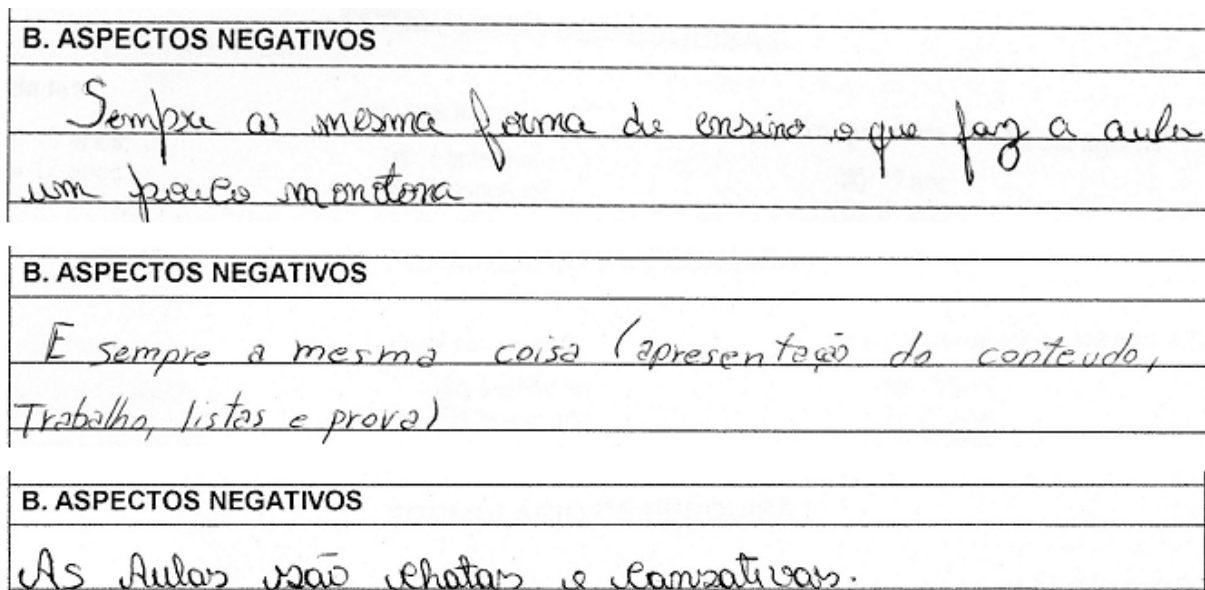 B. ASPECTOS NEGATIVOS
Sempre as mesma forma de ensino o que faz a aula
um pouco monotona
B. ASPECTOS NEGATIVOS
E sempre a mesma coisa (apresentação do conteudo,
Trabalho, listas e prova)
B. ASPECTOS NEGATIVOS
As Aulas são chatas e cansativas.